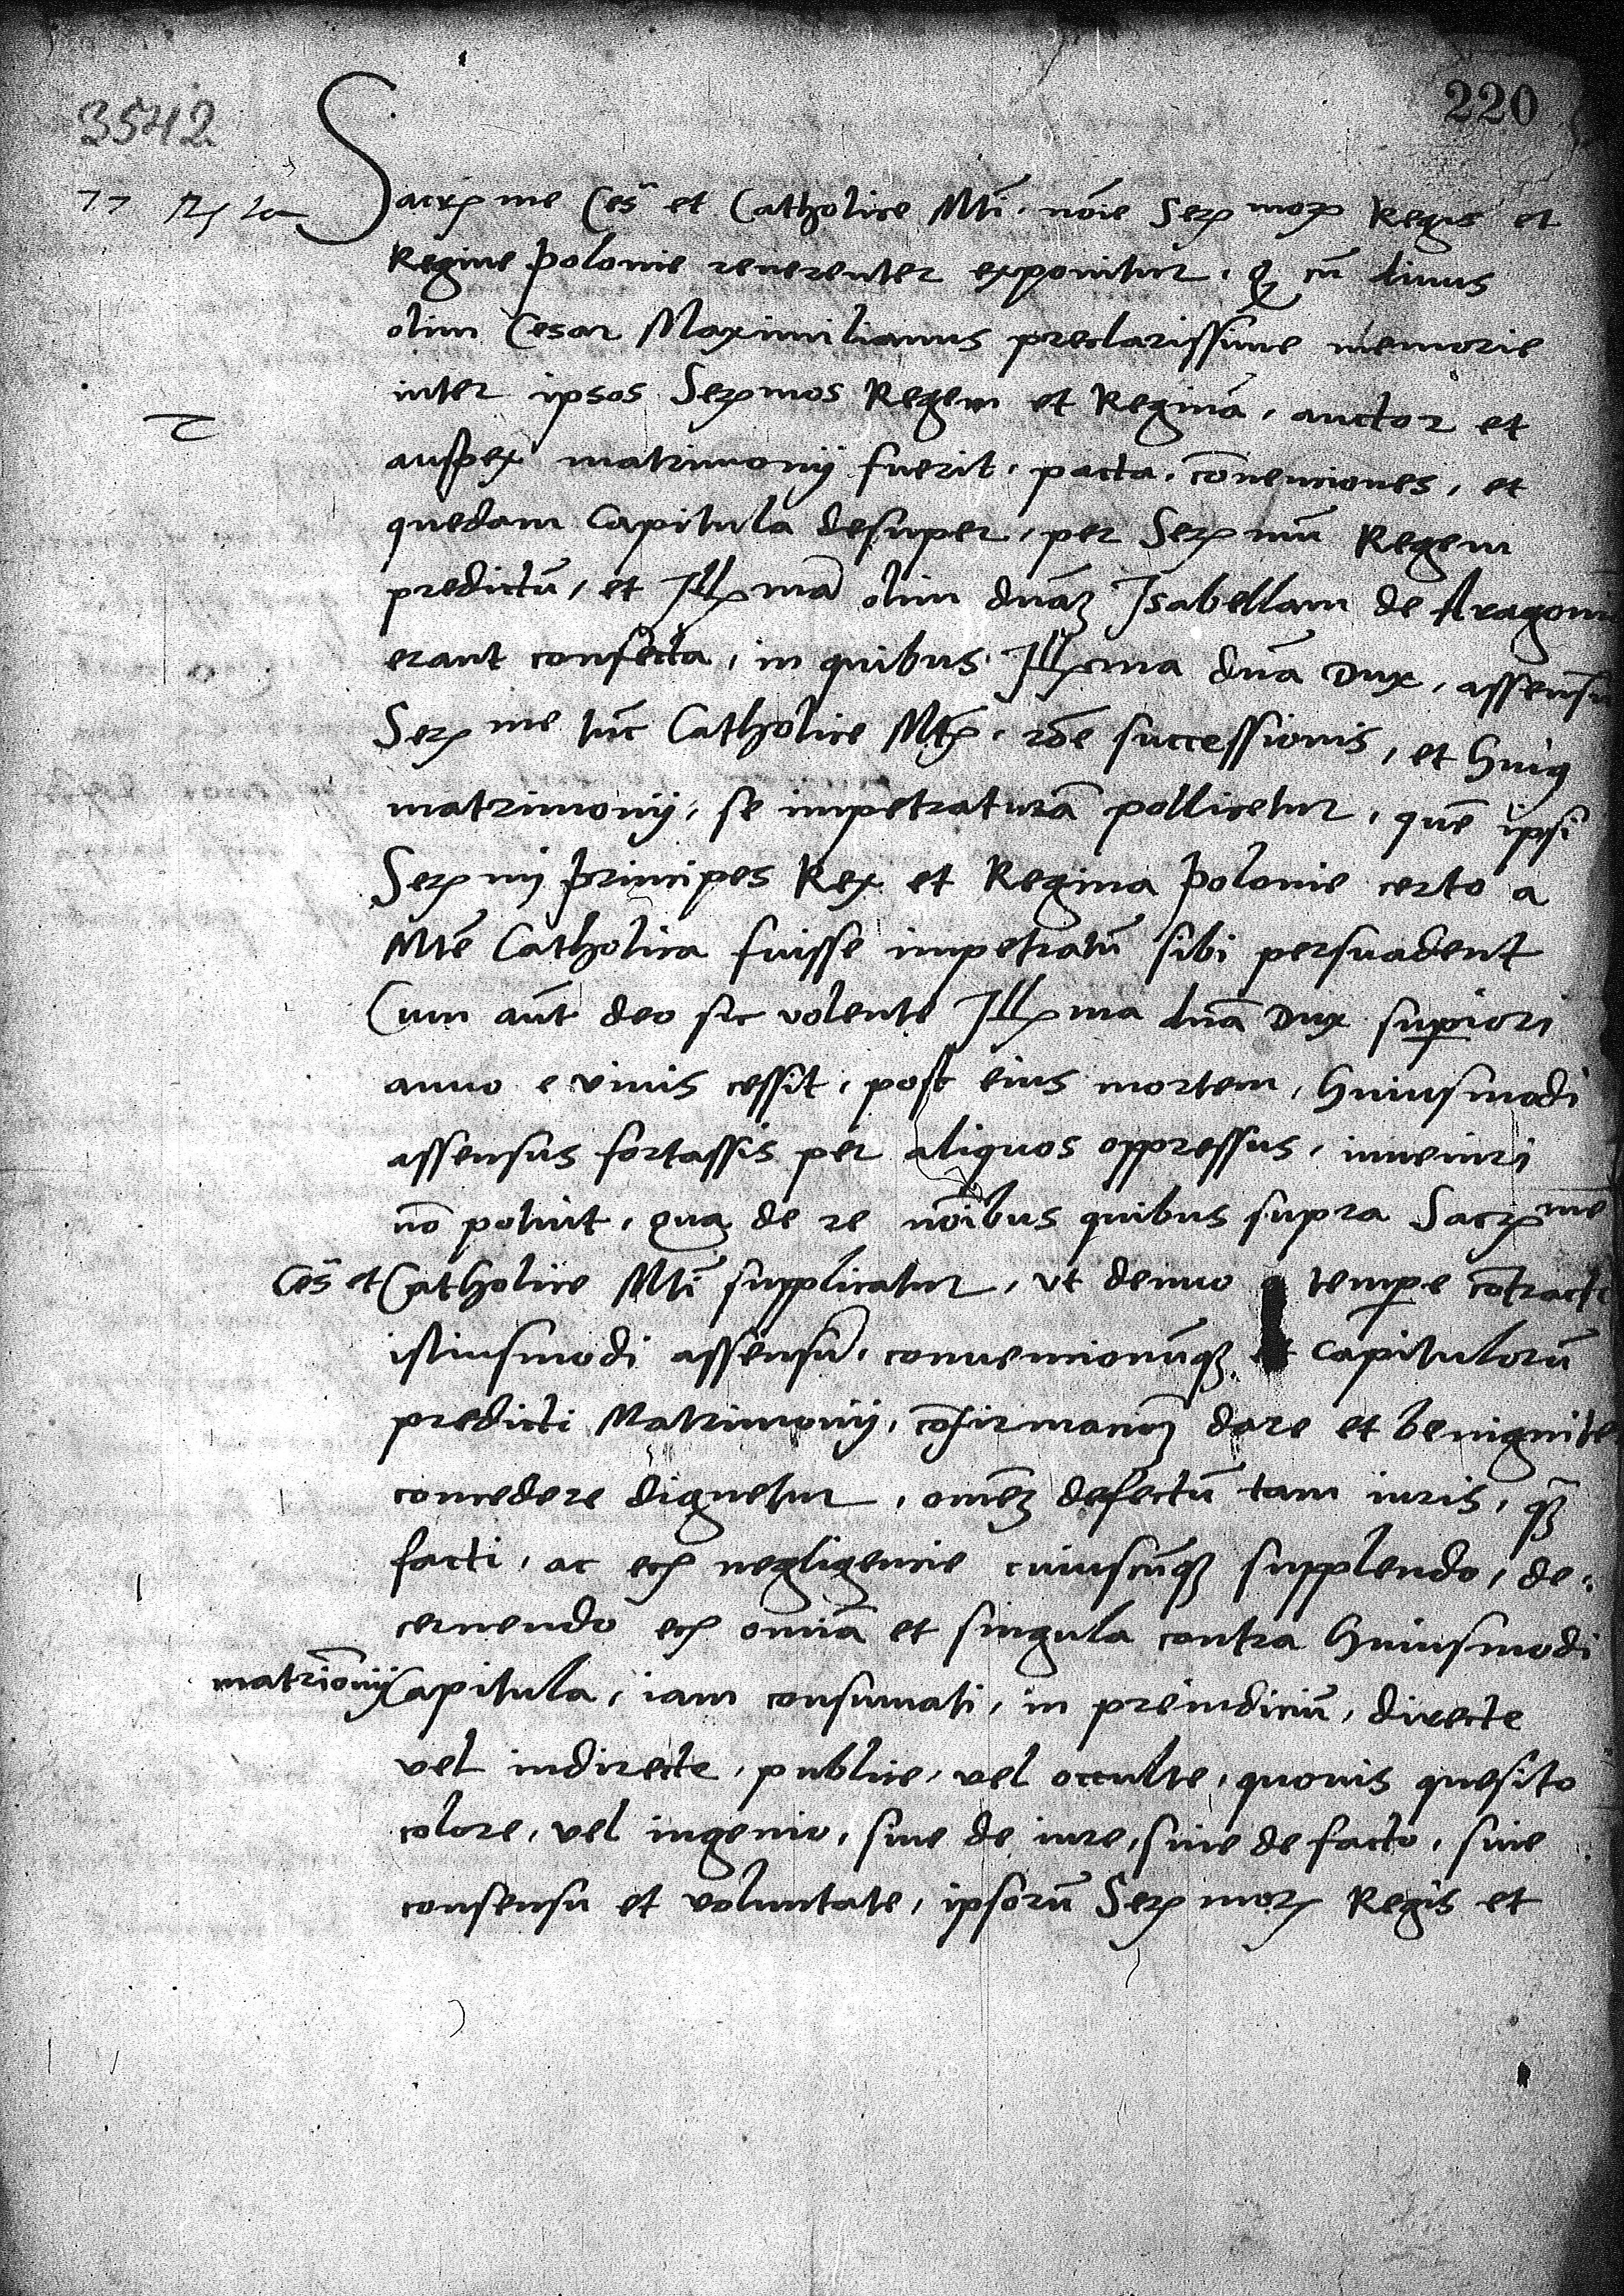 220
3542
Sacr me Ces et Catholice Mti. noīe Ser mor Regis et
Regine Polonie reverenter exponitur, q cū divus
olim Cesar Maximilianus preclarissime memorie
inter ipsos Sermos Regem et Reginā, auctor et
auspex matrimonij fuerit, pacta, cōvenciones, et
quedam Capitula desuper, per Ser mū Regem
predictū, et Ill mā olim dnāʒ Isabellam de Aragon
erant confecta, in quibus Ill ma dnā Dux, assensū
Ser me tūc Catholice Mtis, rōe successionis, et huiq
matrimonij, se impetraturā pollicetur, quē ipsi
Ser mij Principes Rex et Regina Polonie certo a
Mtē Catholica fuisse impetratū sibi persuadent
Cum aūt deo sic volente Ill ma dnā Dux supiori
anno e vivis cessit, post eius mortem, huiusmodi
assensus fortassis per aliquos oppressus, inveniri
nō potuit, qua de re noībus quibus supra Sacr me
Ces et Catholice Mti supplicatur, ut denuo a tempe cōtracti
istiusmodi assensū, convencionūqʒ et Capitulorū
predicti Matrimonij, cōfirmacionē dare et benignite
concedere dignetur, omēʒ defectū tam iuris, qʒ
facti, ac eciā negligencie cuiuscūqʒ supplendo, de-
cernendo eciā omniā et singula contra huiusmodi
matrīonij Capitula, iam consumati, in preiudiciū, directe
vel indirecte, publice, vel occulte, quovis quesito
colore, vel ingenio, sive de iure, sive de facto, sine
consensu et voluntate, ipsorū Ser mor Regis et